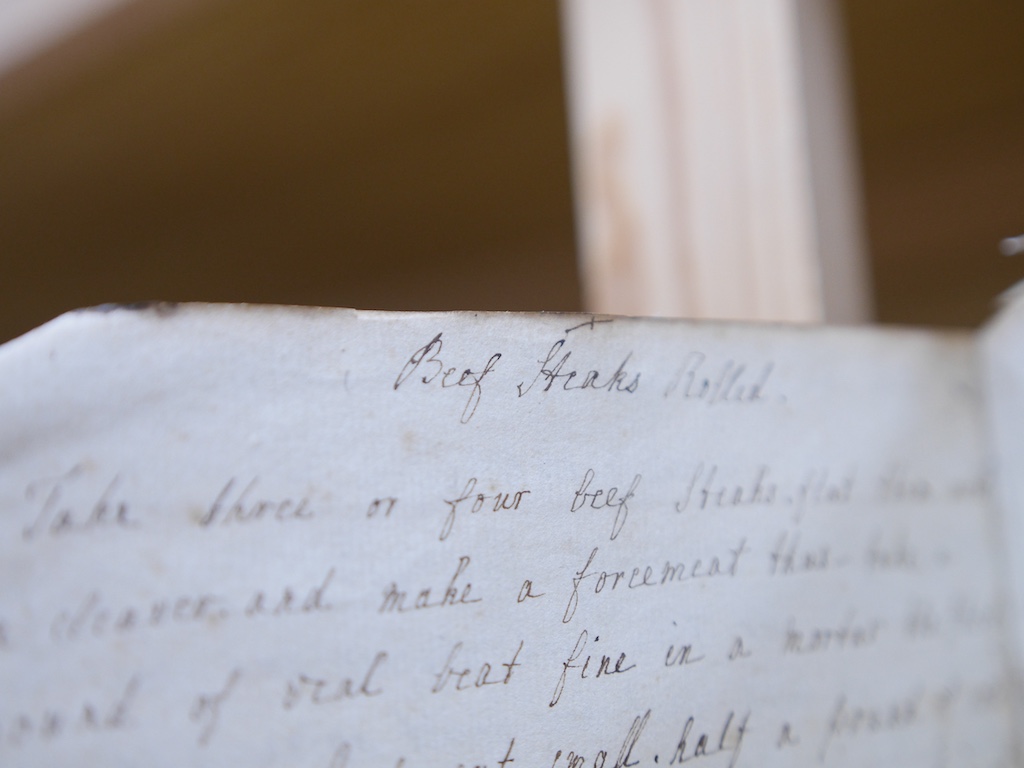 Beef Steaks Rolled.
Take three or four beef Steaks. flat them
cleaver. and make a forcemeat thus - take -
pound of veal beat fine in a mortar the
small. half a pound of